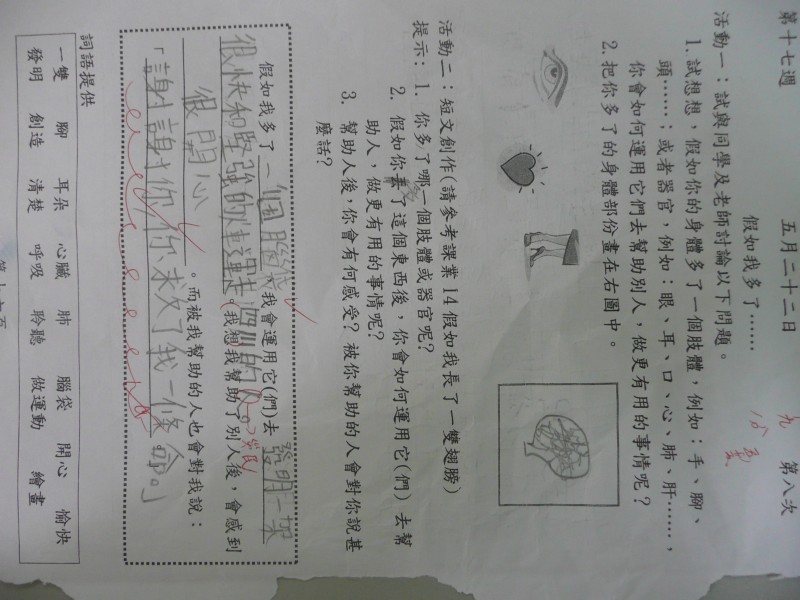 第十七週 五月二十二日 第八次
假如我多了……
活動一：試與同學及老師討論以下問題。
1. 試想想，假如你的身體多了一個肢體，例如：手、腳、
頭……；或者器官，例如：眼、耳、口、心、肺、肝……，
你會如何運用它們去幫助別人，做更有用的事情呢？
2. 把你多了的身體部份畫在右圖中。
活動二：短文創作(請參考課業14假如我長了一雙翅膀)
提示：1. 你多了哪一個肢體或器官呢？
2. 假如你了這個東西後，你會如何運用它(們)去幫
助人，做更有用的事情呢？
3. 幫助人後，你會有何感受？被你幫助的人會對你說甚
麼話？
假如我多了一個腦袋，我會運用它(們)去發明一架
很快和堅強的車運走四川的人。災民(我想我幫助了別人後，會感到
很開心。而被我幫助的人也會對我說：
「謝謝你，你救了我一條命。」
詞語提供
一雙 腳 耳朵 心臟 肺 腦袋 開心 愉快
發明 創造 清楚 呼吸 聆聽 做運動 繪畫
第十七頁